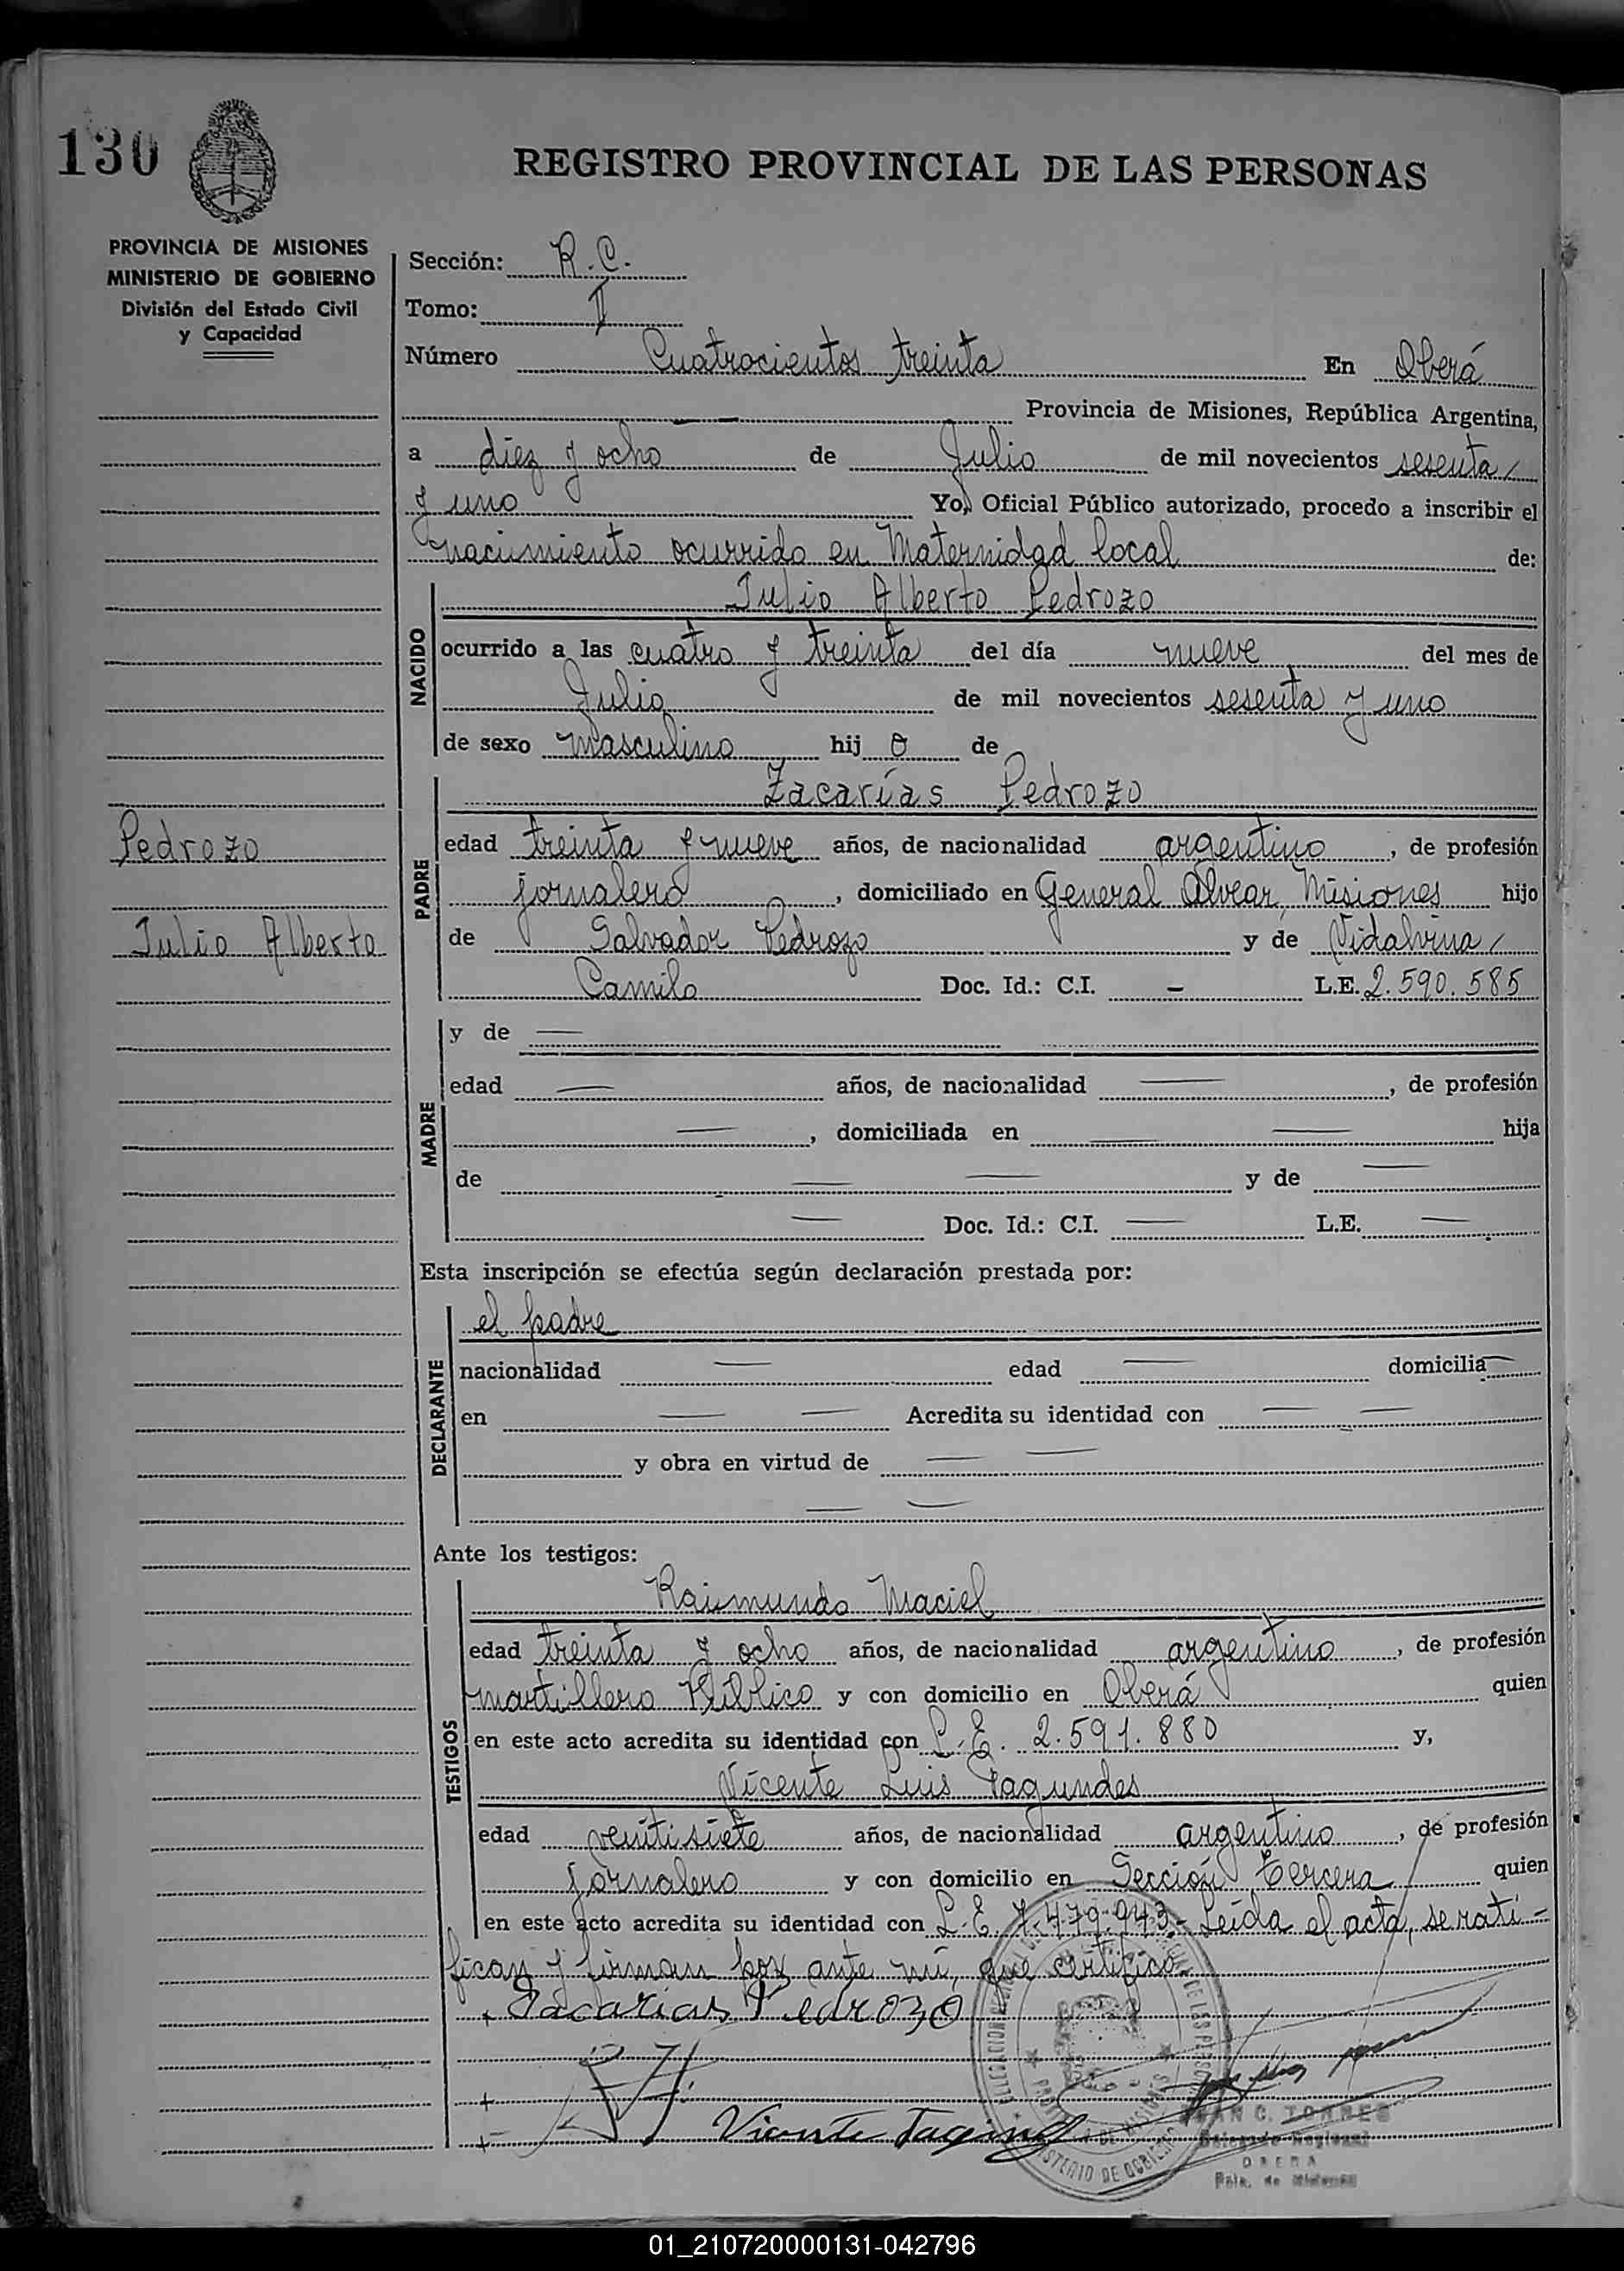 130
REGISTRO PROVINCIAL DE LAS PERSONAS
PROVINCIA DE MISIONES
MINISTERIO DE GOBIERNO
División del Estado Civil
y Capacidad
Sección: R.C.
Tomo: II
Número Cuatrocientos treinta En Oberá
Provincia de Misiones, República Argentina,
a diez y ocho de Julio de mil novecientos sesenta
y uno Yo, Oficial Público autorizado, procedo a inscribir el
nacimiento ocurrido en Maternidad local de:
Julio Alberto Pedrozo
NACIDO
ocurrido a las cuatro y treinta del día nueve del mes de
Julio de mil novecientos sesenta y uno
de sexo masculino hij o de
Zacarías Pedrozo
PADRE
edad treinta y nueve años, de nacionalidad argentino, de profesión
jornalero, domiciliado en General Alvear, Misiones hijo
de Salvador Pedrozo y de Vidalvina
Camilo Doc. Id.: C.I. - L.E. 2.590.585
Pedrozo
Julio Alberto
MADRE
y de —
edad — años, de nacionalidad —, de profesión
—, domiciliada en — — hija
de — — y de —
— Doc. Id.: C.I. — L.E. —
Esta inscripción se efectúa según declaración prestada por:
DECLARANTE
el padre
nacionalidad — edad — domicilia —
en — — Acredita su identidad con — —
y obra en virtud de — —
— —
Ante los testigos:
TESTIGOS
Raimundo Maciel
edad treinta y ocho años, de nacionalidad argentino, de profesión
martillero Público y con domicilio en Oberá quien
en este acto acredita su identidad con L.E. 2.591.880 y,
Vicente Luis Fagundes
edad veintisiete años, de nacionalidad argentino, de profesión
jornalero y con domicilio en Sección tercera quien
en este acto acredita su identidad con L.E. 7.479.943.- Leída el acta, se rati-
fican y firman por ante mí, que certifico.
Zacarias Pedrozo
Vicente Fagund
JUAN C. TORRES
Delegado Regional
OBERA
Pcia. de Misiones
01_210720000131-042796